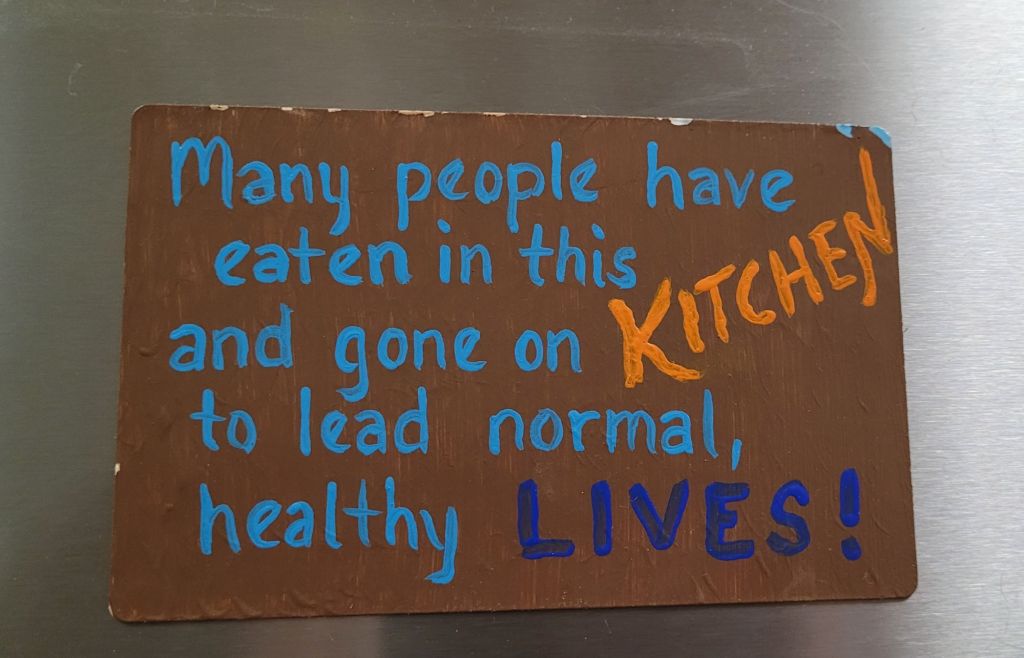 Many people have
eaten in this KITCHEN
and gone on
to lead normal,
healthy LIVES!